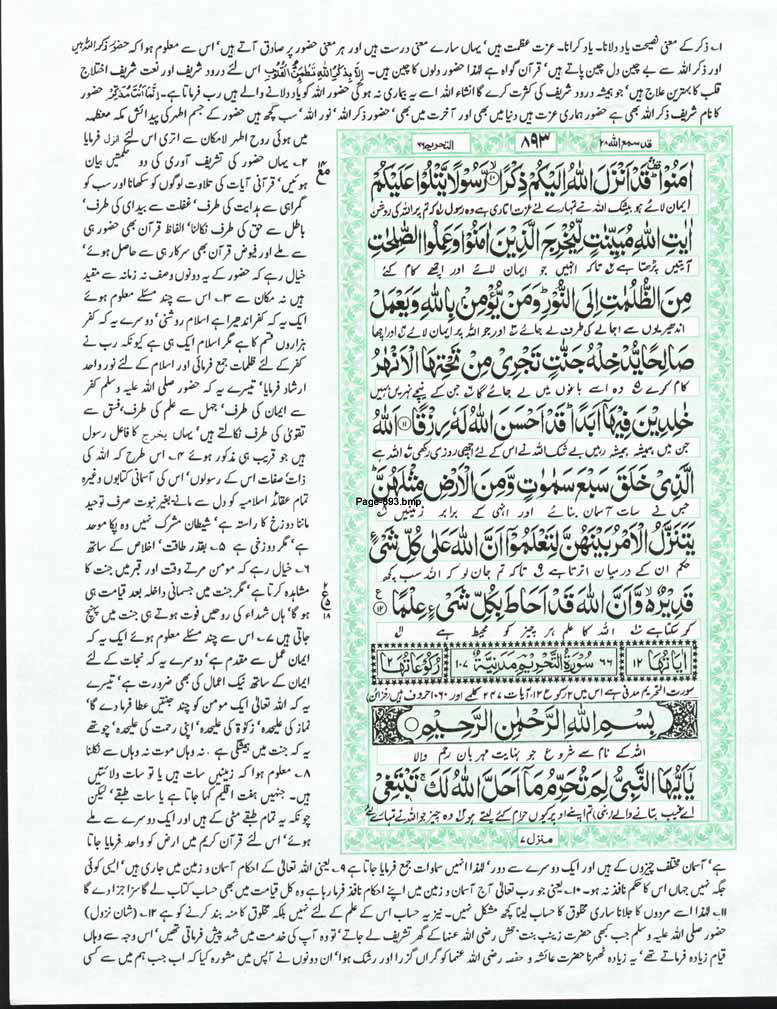 ۱۔ ذکر کے معنی نصیحت یاد دلانا۔ یاد کرانا۔ عزت عظمت ہیں' یہاں سارے معنی درست ہیں اور ہر معنی حضور پر صادق آتے ہیں' اس سے معلوم ہوا کہ حضور ذکر اللہ ہیں
اور ذکر اللہ سے بے چین دل چین پاتے ہیں' قرآن گواہ ہے لہٰذا حضور دلوں کا چین ہیں۔ اَلَا بِذِكْرِ اللهِ تَطْمَئِنُّ الْقُلُوْبُ اس لئے درود شریف اور نعت شریف اختلاج
قلب کا بہترین علاج ہیں' جو ہمیشہ درود شریف کی کثرت کرے گا انشاء اللہ اسے یہ بیماری نہ ہو گی حضور اللہ کو یاد دلانے والے ہیں رب فرماتا ہے۔ اِنَّمَا اَنْتَ مُذَكِّرٌ حضور
کا نام شریف ذکر اللہ بھی ہے حضور ہماری عزت ہیں دنیا میں بھی اور آخرت میں بھی' حضور ذکر اللہ' نور اللہ' سب کچھ ہیں حضور کے جسم اطہر کی پیدائش مکہ معظمہ
میں ہوئی روح اطہر لامکان سے اتری اس لئے انزل فرمایا
۲۔ یہاں حضور کی تشریف آوری کی دو حکمتیں بیان
ہوئیں' قرآنی آیات کی تلاوت لوگوں کو سکھانا اور سب کو
گمراہی سے ہدایت کی طرف' غفلت سے بیداری کی طرف'
باطل سے حق کی طرف نکالنا' الفاظ قرآن بھی حضور ہی
سے ملے اور فیوض قرآن بھی سرکار ہی سے حاصل ہوئے'
خیال رہے کہ حضور کے یہ دونوں وصف نہ زمانہ سے مقید
ہیں نہ مکان سے ۳۔ اس سے چند مسئلے معلوم ہوئے
ایک یہ کہ کفر اندھیرا ہے اسلام روشنی' دوسرے یہ کہ کفر
ہزاروں قسم کا ہے مگر اسلام ایک ہی ہے کیونکہ رب نے
کفر کے لئے ظلمات جمع فرمائی اور اسلام کے لئے نور واحد
ارشاد فرمایا' تیسرے یہ کہ حضور صلی اللہ علیہ وسلم کفر
سے ایمان کی طرف' جہل سے علم کی طرف' فسق سے
تقویٰ کی طرف نکالتے ہیں' یہاں یخرج کا فاعل رسول
ہیں جو قریب ہی مذکور ہوئے ۴۔ اس طرح کہ اللہ کی
ذات' صفات اس کے رسولوں' اس کی آسمانی کتابوں وغیرہ
تمام عقائد اسلامیہ کو دل سے مانے۔ بغیر نبوت صرف توحید
ماننا دوزخ کا راستہ ہے' شیطان مشرک نہیں وہ پکا موحد
ہے' مگر دوزخی ہے ۵۔ بقدر طاقت' اخلاص کے ساتھ
۶۔ خیال رہے کہ مومن مرتے وقت اور قبر میں جنت کا
مشاہدہ کرتا ہے' مگر جنت میں جسمانی داخلہ بعد قیامت ہی
ہو گا' ہاں شہداء کی روحیں فوت ہوتے ہی جنت میں پہنچ
جاتی ہیں ۷۔ اس سے چند مسئلے معلوم ہوئے ایک یہ کہ
ایمان عمل سے مقدم ہے' دوسرے یہ کہ نجات کے لئے
ایمان کے ساتھ نیک اعمال کی بھی ضرورت ہے' تیسرے
یہ کہ اللہ تعالٰی ایک مومن کو چند جنتیں عطا فرمادے گا'
نماز کی علیحدہ' زکوٰۃ کی علیحدہ' اپنی رحمت کی علیحدہ' چوتھے
یہ کہ جنت میں ہمیشگی ہے۔ نہ وہاں موت نہ وہاں سے نکلنا
۸۔ معلوم ہوا کہ زمینیں سات ہیں یا تو سات ولائتیں
ہیں۔ جنہیں ہفت اقلیم کہا جاتا ہے یا سات طبقے' لیکن
چونکہ یہ تمام طبقے مٹی کے ہیں اور ایک دوسرے سے ملے
ہوئے' اس لئے قرآن کریم میں ارض کو واحد فرمایا جاتا
التحریم ۶۶
۸۹۳
قد سمع الله ۲۸
اٰمَنُوْا ؕ قَدْ اَنْزَلَ اللّٰهُ اِلَیْكُمْ ذِكْرًا ۙ۱۰ رَّسُوْلًا یَّتْلُوْا عَلَیْكُمْ
ایمان لائے ہو بیشک اللہ نے تمہارے لئے عزت اتاری ہے وہ رسول کہ تم پر اللہ کی روشن
اٰیٰتِ اللّٰهِ مُبَیِّنٰتٍ لِّیُخْرِجَ الَّذِیْنَ اٰمَنُوْا وَ عَمِلُوا الصّٰلِحٰتِ
آیتیں پڑھتا ہے تاکہ انہیں جو ایمان لائے اور اچھے کام کئے
مِنَ الظُّلُمٰتِ اِلَی النُّوْرِ ؕ وَ مَنْ یُّؤْمِنْۢ بِاللّٰهِ وَ یَعْمَلْ
اندھیریوں سے اجالے کی طرف لے جائے اور جو اللہ پر ایمان لائے اور اچھا
صَالِحًا یُّدْخِلْهُ جَنّٰتٍ تَجْرِیْ مِنْ تَحْتِهَا الْاَنْهٰرُ
کام کرے وہ اسے باغوں میں لے جائے گا جن کے نیچے نہریں بہیں
خٰلِدِیْنَ فِیْهَاۤ اَبَدًا ؕ قَدْ اَحْسَنَ اللّٰهُ لَهٗ رِزْقًا ۱۱ اَللّٰهُ
جن میں ہمیشہ ہمیشہ رہیں بے شک اللہ نے اس کے لئے اچھی روزی رکھی اللہ ہے
الَّذِیْ خَلَقَ سَبْعَ سَمٰوٰتٍ وَّ مِنَ الْاَرْضِ مِثْلَهُنَّ ؕ
جس نے سات آسمان بنائے اور انہی کے برابر زمینیں
Page-893.bmp
یَتَنَزَّلُ الْاَمْرُ بَیْنَهُنَّ لِتَعْلَمُوْۤا اَنَّ اللّٰهَ عَلٰی كُلِّ شَیْءٍ
حکم ان کے درمیان اترتا ہے تاکہ تم جان لو کہ اللہ سب کچھ
قَدِیْرٌ ۙ۬ وَّ اَنَّ اللّٰهَ قَدْ اَحَاطَ بِكُلِّ شَیْءٍ عِلْمًا ۱۲
کر سکتا ہے اللہ کا علم ہر چیز کو محیط ہے
اٰیَاتُهَا ۱۲
۶۶ سُوْرَةُ التَّحْرِیْمِ مَدَنِیَّةٌ ۱۰۷
رُكُوْعَاتُهَا ۲
سورت التحریم مدنی ہے اس میں ۲ رکوع ۱۲ آیات ۲۴۷ کلمے اور ۱۰۶۰ حروف ہیں (خزائن)
بِسْمِ اللّٰهِ الرَّحْمٰنِ الرَّحِیْمِ
اللہ کے نام سے شروع جو نہایت مہربان رحم والا
یٰۤاَیُّهَا النَّبِیُّ لِمَ تُحَرِّمُ مَاۤ اَحَلَّ اللّٰهُ لَكَ ۚ تَبْتَغِیْ
اے غیب بتانے والے (نبی) تم اپنے اوپر کیوں حرام کئے لیتے ہو وہ چیز جو اللہ نے تمہارے لئے
منزل ۷
ہے' آسمان مختلف چیزوں کے ہیں اور ایک دوسرے سے دور' لہٰذا انہیں سماوات جمع فرمایا جاتا ہے ۹۔ یعنی اللہ تعالٰی کے احکام آسمان و زمین میں جاری ہیں' ایسی کوئی
جگہ نہیں جہاں اس کا حکم نافذ نہ ہو۔ ۱۰۔ یعنی جو رب تعالٰی آج آسمان و زمین میں اپنے احکام نافذ فرما رہا ہے وہ کل قیامت میں بھی حساب کتاب لے گا سزا جزا دے گا
۱۱۔ لہٰذا اسے مردوں کا جلانا ساری مخلوق کا حساب لینا کچھ مشکل نہیں۔ نیز یہ حساب اس کے علم کے لئے نہیں بلکہ مخلوق کا منہ بند کرنے کو ہے ۱۲۔ (شان نزول)
حضور صلی اللہ علیہ وسلم جب کبھی حضرت زینب بنت جحش رضی اللہ عنہا کے گھر تشریف لے جاتے' تو وہ آپ کی خدمت میں شہد پیش فرماتی تھیں' اس وجہ سے وہاں
قیام زیادہ فرماتے تھے' یہ زیادہ ٹھہرنا حضرت عائشہ و حفصہ رضی اللہ عنہما کو گراں گزرا اور رشک ہوا' ان دونوں نے آپس میں مشورہ کیا کہ اب جب ہم میں سے کسی